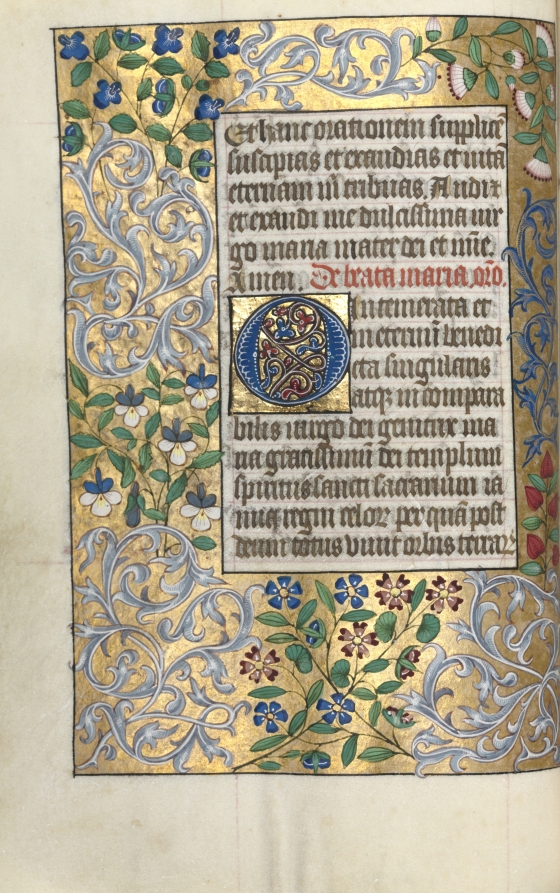 Et hanc orationem supplicē
suscipias et exaudias et uitā
eternam m̄ tribuas. Audi et
et exaudi me dulcissima uir
go maria mater dei et mīe.
Amen. De beata maria orō.
O intemerata et
in eternū benedi
cta singularis
atq̄ incompara
bilis uirgo dei genitrix ma
ria gratissimū dei templum
spiritus sancti sacrarium ia
nua regni celorꝝ per quā post
deum totus viuit orbis terraꝝ